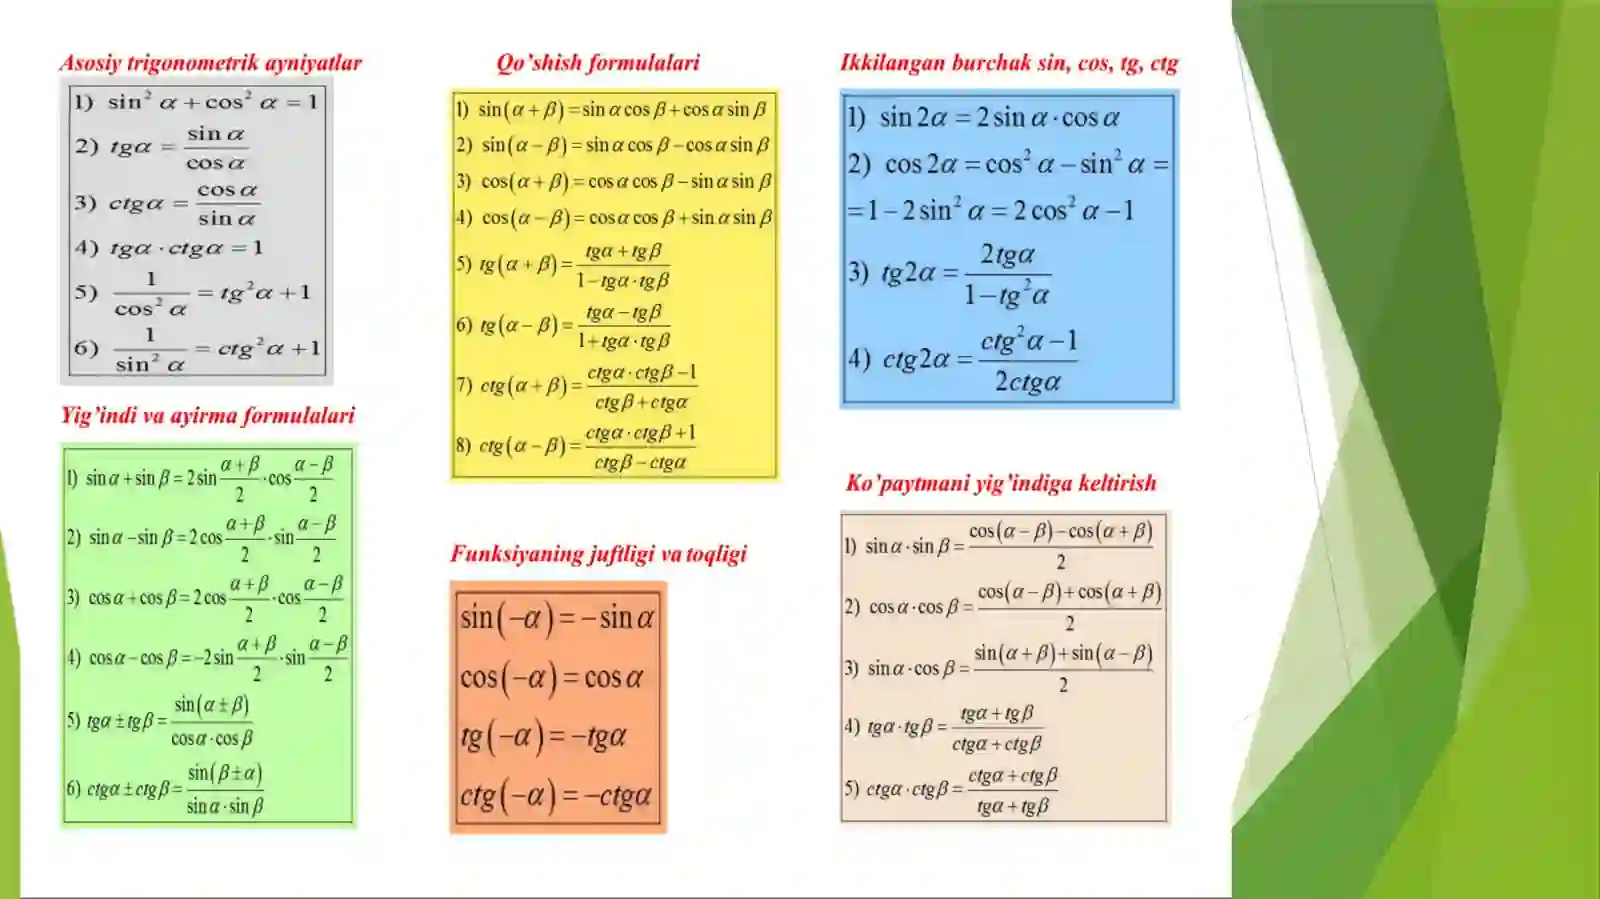 Asosiy trigonometrik ayniyatlar
1) sin² α + cos² α = 1
2) tgα = sin α / cos α
3) ctgα = cos α / sin α
4) tgα · ctgα = 1
5) 1 / cos² α = tg²α + 1
6) 1 / sin² α = ctg²α + 1
Yig’indi va ayirma formulalari
1) sin α + sin β = 2 sin (α + β)/2 · cos (α − β)/2
2) sin α − sin β = 2 cos (α + β)/2 · sin (α − β)/2
3) cos α + cos β = 2 cos (α + β)/2 · cos (α − β)/2
4) cos α − cos β = −2 sin (α + β)/2 · sin (α − β)/2
5) tgα ± tgβ = sin(α ± β) / cos α · cos β
6) ctgα ± ctgβ = sin(β ± α) / sin α · sin β
Qo’shish formulalari
1) sin(α + β) = sin α cos β + cos α sin β
2) sin(α − β) = sin α cos β − cos α sin β
3) cos(α + β) = cos α cos β − sin α sin β
4) cos(α − β) = cos α cos β + sin α sin β
5) tg(α + β) = tgα + tgβ / 1 − tgα · tgβ
6) tg(α − β) = tgα − tgβ / 1 + tgα · tgβ
7) ctg(α + β) = ctgα · ctgβ − 1 / ctgβ + ctgα
8) ctg(α − β) = ctgα · ctgβ + 1 / ctgβ − ctgα
Funksiyaning juftligi va toqligi
sin(−α) = − sin α
cos(−α) = cos α
tg(−α) = −tgα
ctg(−α) = −ctgα
Ikkilangan burchak sin, cos, tg, ctg
1) sin 2α = 2 sin α · cos α
2) cos 2α = cos² α − sin² α =
= 1 − 2 sin² α = 2 cos² α − 1
3) tg2α = 2tgα / 1 − tg²α
4) ctg2α = ctg²α − 1 / 2ctgα
Ko’paytmani yig’indiga keltirish
1) sin α · sin β = cos(α − β) − cos(α + β) / 2
2) cos α · cos β = cos(α − β) + cos(α + β) / 2
3) sin α · cos β = sin(α + β) + sin(α − β) / 2
4) tgα · tgβ = tgα + tgβ / ctgα + ctgβ
5) ctgα · ctgβ = ctgα + ctgβ / tgα + tgβ